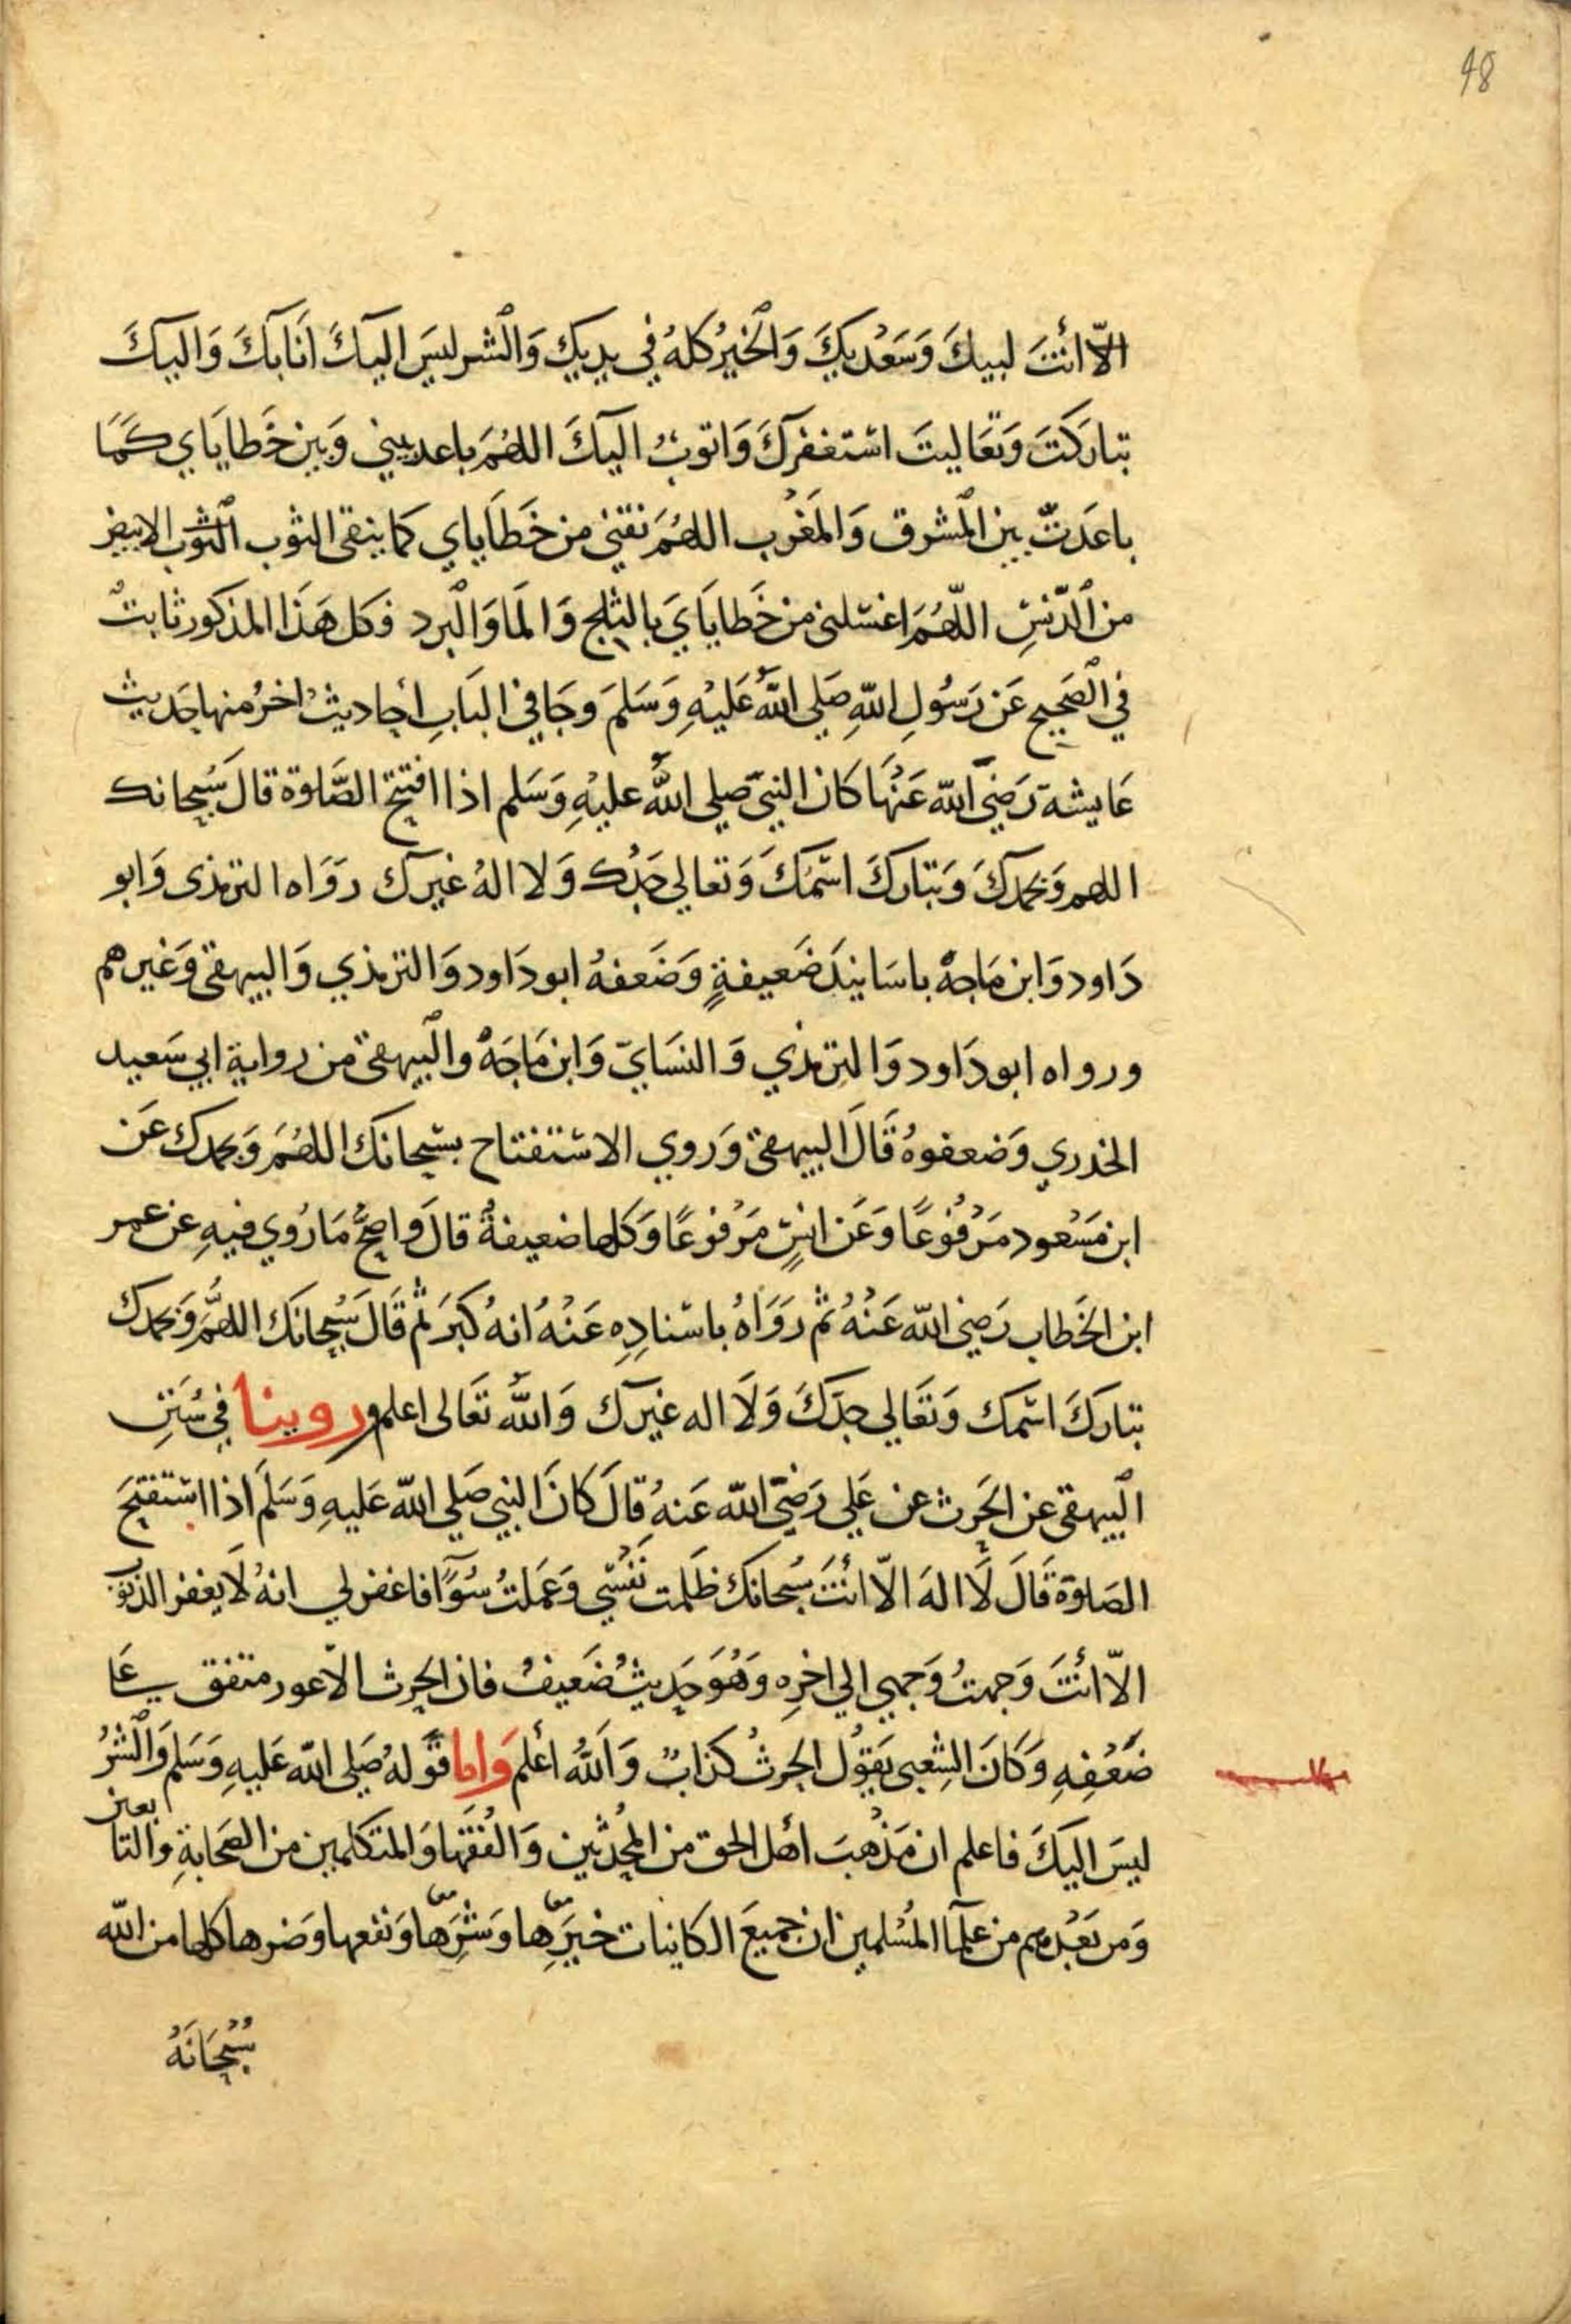 48
الّا أنْتَ لبيكَ وَسَعْديكَ وَالخيرُ كلهُ في يديك وَالشر ليسَ اليكَ انَا بكَ وَاليكَ
تباركتَ وَتعَاليتَ استغفركَ وَاتوبُ اليكَ اللهُمَ باعد بيني وَبين خَطايَاي كَمَا
باعَدتّ بين المشرق وَالمَغرب اللهُمَ نقني من خَطاياي كما ينقى الثوب الثوب الابيض
من الدّنسِ اللّهُمَ اغسلني من خَطايَايَ بالثلج وَالمَا وَالبرد فكل هَذا المذكور ثابتُ
في الصَحيح عَن رَسُولِ اللهِ صَلي اللهُ عَليْهِ وَسَلمَ وجَا في البَابِ أحاديثُ اخرُ منها حَديث
عَايشة رَضيَ الله عَنْهَا كان النبيّ صلي اللهُ عليْهِ وَسَلم اذا افتتح الصَّلوة قالَ سُبحانك
اللهم وَبحمدكَ وَتباركَ اسْمُكَ وَتعالي جَدُك وَلا الهُ غيرك رَوَاه الترمذى وَابو
دَاود وَابن مَاجهْ باسَانيدَ ضَعيفةٍ وَضَعفهُ ابو دَاود وَالترمذي وَالبيهقى وَغيرهم
ورواه ابو دَاود وَالترمذي وَالنسَايّ وَابن مَاجَهْ والبيهقى من رواية ابي سَعيد
الخدري وَضعفوهُ قَالَ البيهقى وَروي الاستفتاح بسبحانكَ اللهُمَ وَبحمدك عَن
ابن مَسْعود مَرْفُوعًا وَعَن انسٍ مَرْفوعًا وَكلها ضعيفةُ قالَ واصحُّ مَا رُوي فيهِ عن عمر
ابن الخَطاب رَضي الله عَنْهُ ثم رَوَاهُ باسنادِهِ عَنْهُ انهُ كبَرَ ثم قَالَ سُبحانَك اللهُمَّ وَبحمدك
تباركَ اسمك وَتعَالي جدّكَ وَلَا اله غيرك وَاللهُ تعَالى اعلم وروينا في سُنَنِ
البيهقى عن الحَرث عن عَلي رَضيَ الله عَنهُ قالَ كانَ النبي صَلي الله عَليهِ وَسَلمَ اذا استفتحَ
الصَلوة قَالَ لَا الهَ الّا أنْتَ سُبحانك ظَلمت نَفْسي وَعَملتُ سُوًا فاغفر لي انهُ لَا يغفر الذنوب
الاّ أنتَ وَجهتُ وَجهي الي اخرِه وَهُوَ حَديثُ ضَعيفُ فان الحرث الاعور متفق عَلى
ضَعْفِهِ وَكَانَ الشِعبى يَقوُل الحرثُ كذابُ وَاللهُ أعْلم وَاما قوْلهُ صَلى الله عَليهِ وَسَلم وَالشرُ
ليسَ اليكَ فاعلم ان مَذْهبَ أهل الحق من المحُدثين وَالفُقَهَا وَالمتكلمين من الصَحابةِ والتابعين
وَمن بَعْدهم من علمآ المُسْلمين ان جميعَ الكاينات خيرِّها وَشرِّها وَنفعها وَضرها كلها من الله
سُبْحَانَهُ